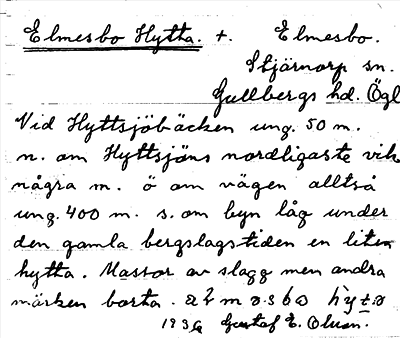 Elmesbo Hytta. +. Elmesbo.
Stjärnorp sn.
Gullbergs hd. Ögl
Vid Hyttsjöbäcken ung. 50 m.
n. om Hyttsjöns nordligaste vik
några m. ö om vägen alltså
ung. 400 m. s. om byn låg under
den gamla bergslagstiden en liten
hytta. Massor av slagg men andra
märken borta.
193 Gustaf E. Olsson.